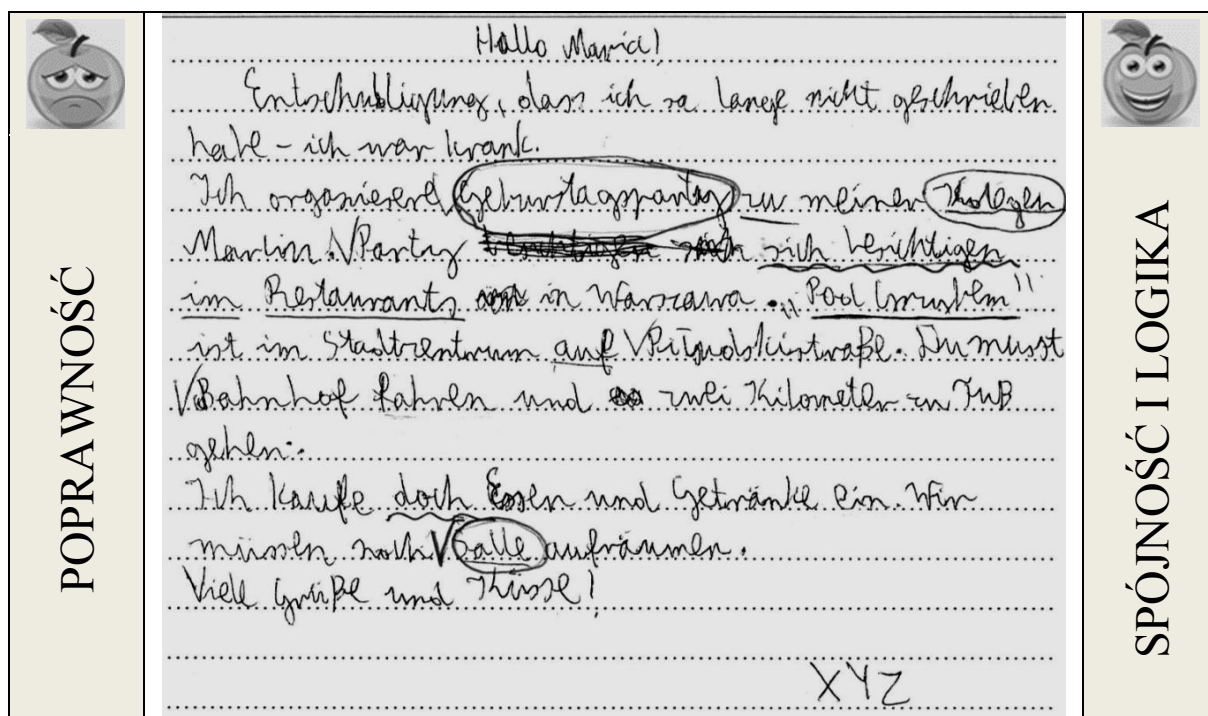 POPRAWNOŚĆ
Hallo Maria!
Entschuldigung, dass ich so lange nicht geschrieben
habe – ich war krank.
Ich organisiere Geburstagsparty zu meiner Kolegen
Martin. √ Party sich besichtigen
im Restaurants in Warszawa. "Pod Gruszkem"
ist im Stadtzentrum auf √ Piłsudskistraße. Du musst
√ Bahnhof fahren und zwei Kilometer zu Fuß
gehen.
Ich kaufe doch Essen und Getränke ein. Wir
müssen noch √ Salle aufräumen.
Viele Grüße und Küsse!
XYZ
SPÓJNOŚĆ I LOGIKA